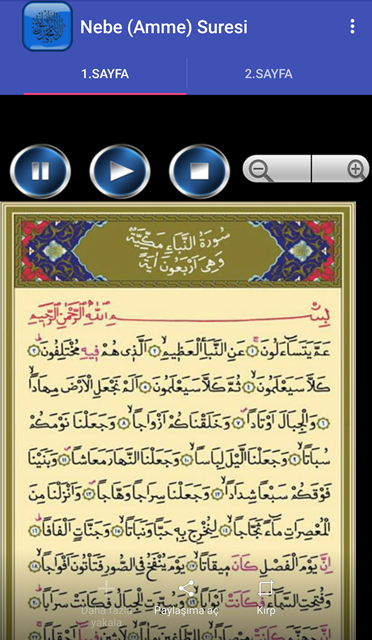 Nebe (Amme) Suresi
1.SAYFA
2.SAYFA
سُورَةُ النَّبَاِ مَكِّيَّةٌ
وَهِيَ اَرْبَعُونَ اٰيَةً
بِسْــــــمِ اللّٰهِ الرَّحْمٰنِ الرَّحِيمِ
عَمَّ يَتَسَاۤءَلُونَۚ ﴿١﴾ عَنِ النَّبَاِ الْعَظِيمِۙ ﴿٢﴾ اَلَّذِى هُمْ فِيهِ مُخْتَلِفُونَۜ ﴿٣﴾
كَلَّا سَيَعْلَمُونَۙ ﴿٤﴾ ثُمَّ كَلَّا سَيَعْلَمُونَ ﴿٥﴾ اَلَمْ نَجْعَلِ الْاَرْضَ مِهَادًاۙ
﴿٦﴾ وَالْجِبَالَ اَوْتَادًاۖ ﴿٧﴾ وَخَلَقْنَاكُمْ اَزْوَاجًاۙ ﴿٨﴾ وَجَعَلْنَا نَوْمَكُمْ
سُبَاتًاۙ ﴿٩﴾ وَجَعَلْنَا الَّيْلَ لِبَاسًاۙ ﴿١٠﴾ وَجَعَلْنَا النَّهَارَ مَعَاشًاۖ ﴿١١﴾ وَبَنَيْنَا
فَوْقَكُمْ سَبْعًا شِدَادًاۙ ﴿١٢﴾ وَجَعَلْنَا سِرَاجًا وَهَّاجًاۖ ﴿١٣﴾ وَاَنْزَلْنَا مِنَ
الْمُعْصِرَاتِ مَاۤءً ثَجَّاجًاۙ ﴿١٤﴾ لِنُخْرِجَ بِهِ حَبًّا وَنَبَاتًاۙ ﴿١٥﴾ وَجَنَّاتٍ اَلْفَافًاۜ ﴿١٦﴾
اِنَّ يَوْمَ الْفَصْلِ كَانَ مِيقَاتًاۙ ﴿١٧﴾ يَوْمَ يُنْفَخُ فِى الصُّورِ فَتَأْتُونَ اَفْوَاجًاۙ ﴿١٨﴾
وَفُتِحَتِ السَّمَاۤءُ فَكَانَتْ اَبْوَابًاۙ ﴿١٩﴾ وَسُيِّرَتِ الْجِبَالُ فَكَانَتْ سَرَابًاۜ
Daha fazla yakala
Paylaşıma aç
Kırp